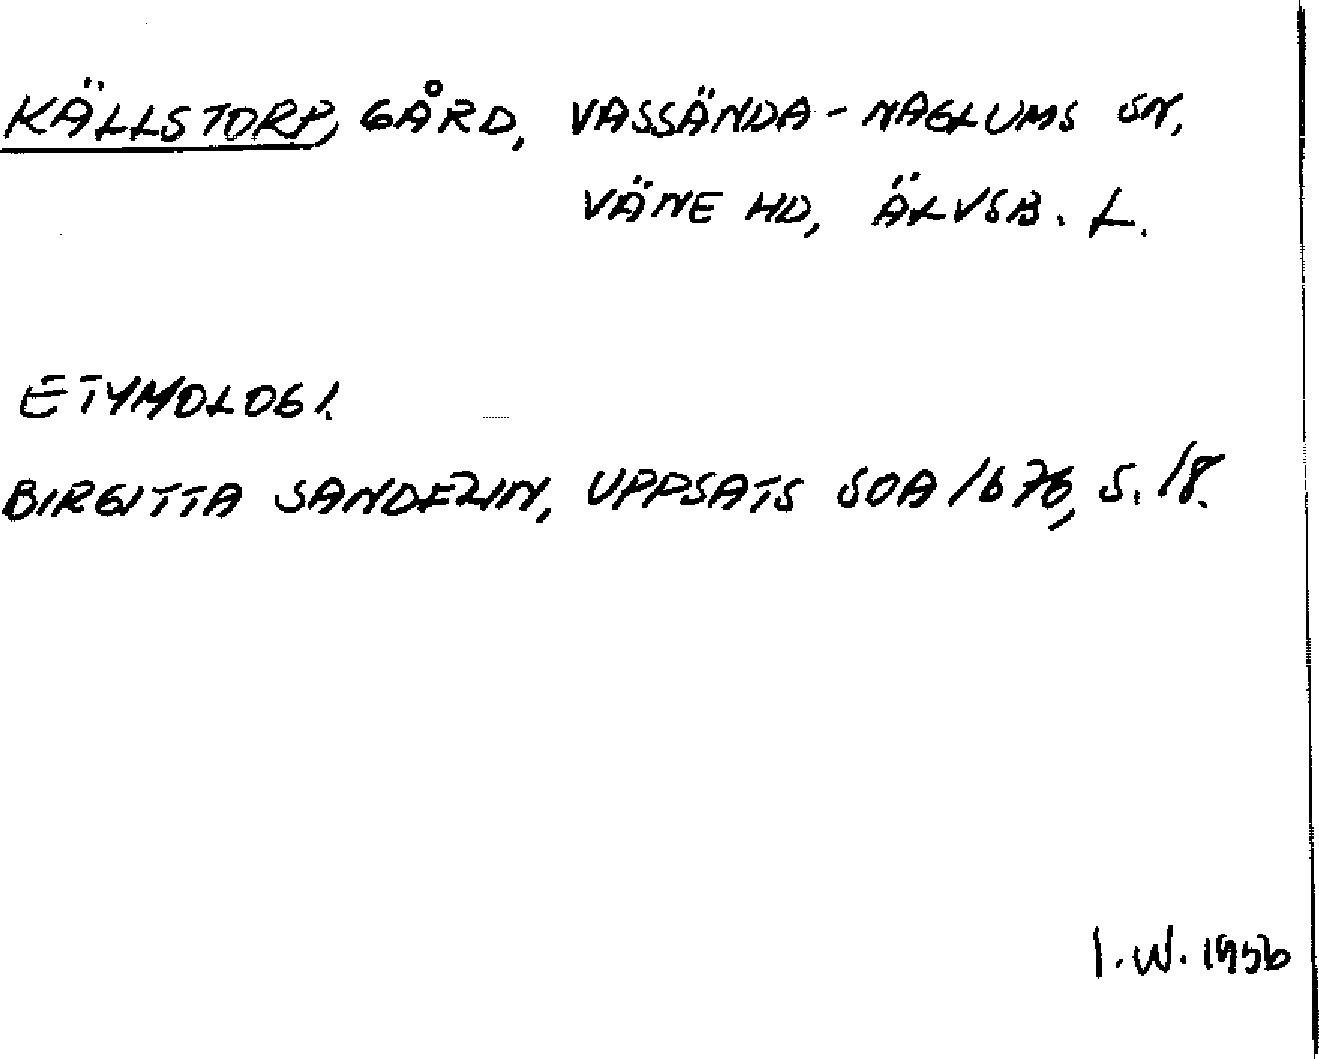 KÄLLSTORP, GÅRD, VASSÄNDA-NAGLUMS SN,
VÄNE HD, ÄLVSB. L.
ETYMOLOGI.
BIRGITTA SANDELIN, UPPSATS SOA 1676, S. 18.
I. W. 1956